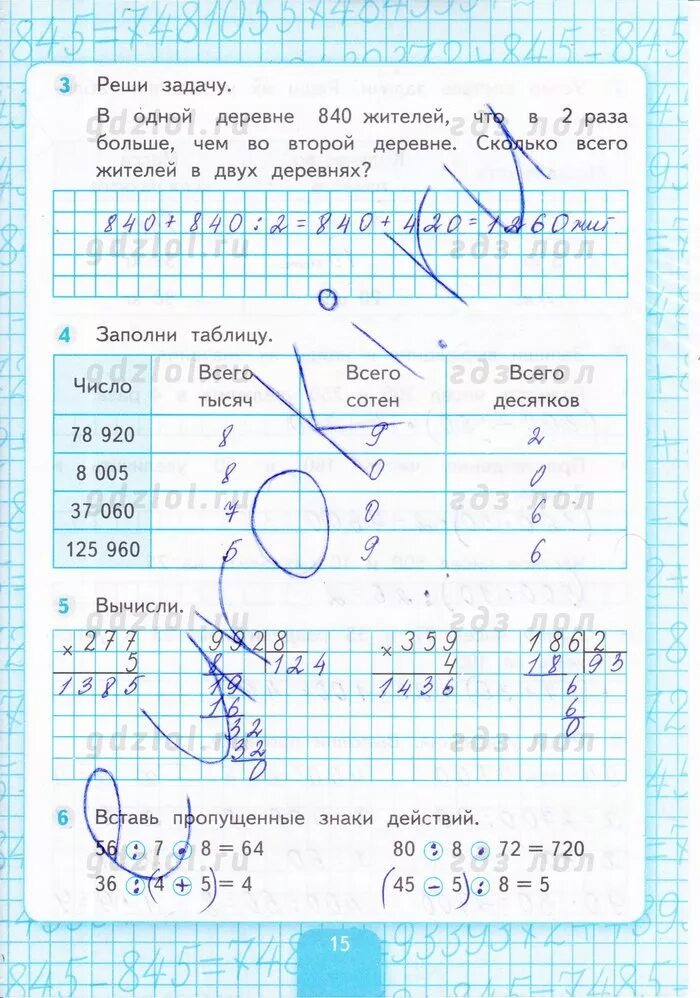 3 Реши задачу.
В одной деревне 840 жителей, что в 2 раза
больше, чем во второй деревне. Сколько всего
жителей в двух деревнях?
840 + 840 : 2 = 840 + 420 = 1260 жит.
4 Заполни таблицу.
Число Всего тысяч Всего сотен Всего десятков
78 920 8 9 2
8 005 8 0 0
37 060 7 0 6
125 960 5 9 6
5 Вычисли.
× 277 992 8 × 359 186 2
5 8 124 4 18 93
1385 19 1436 6
16 6
32 0
32
0
6 Вставь пропущенные знаки действий.
56 : 7 · 8 = 64 80 : 8 · 72 = 720
36 : (4 + 5) = 4 (45 − 5) : 8 = 5
15
gdzlol.ru гдз лол